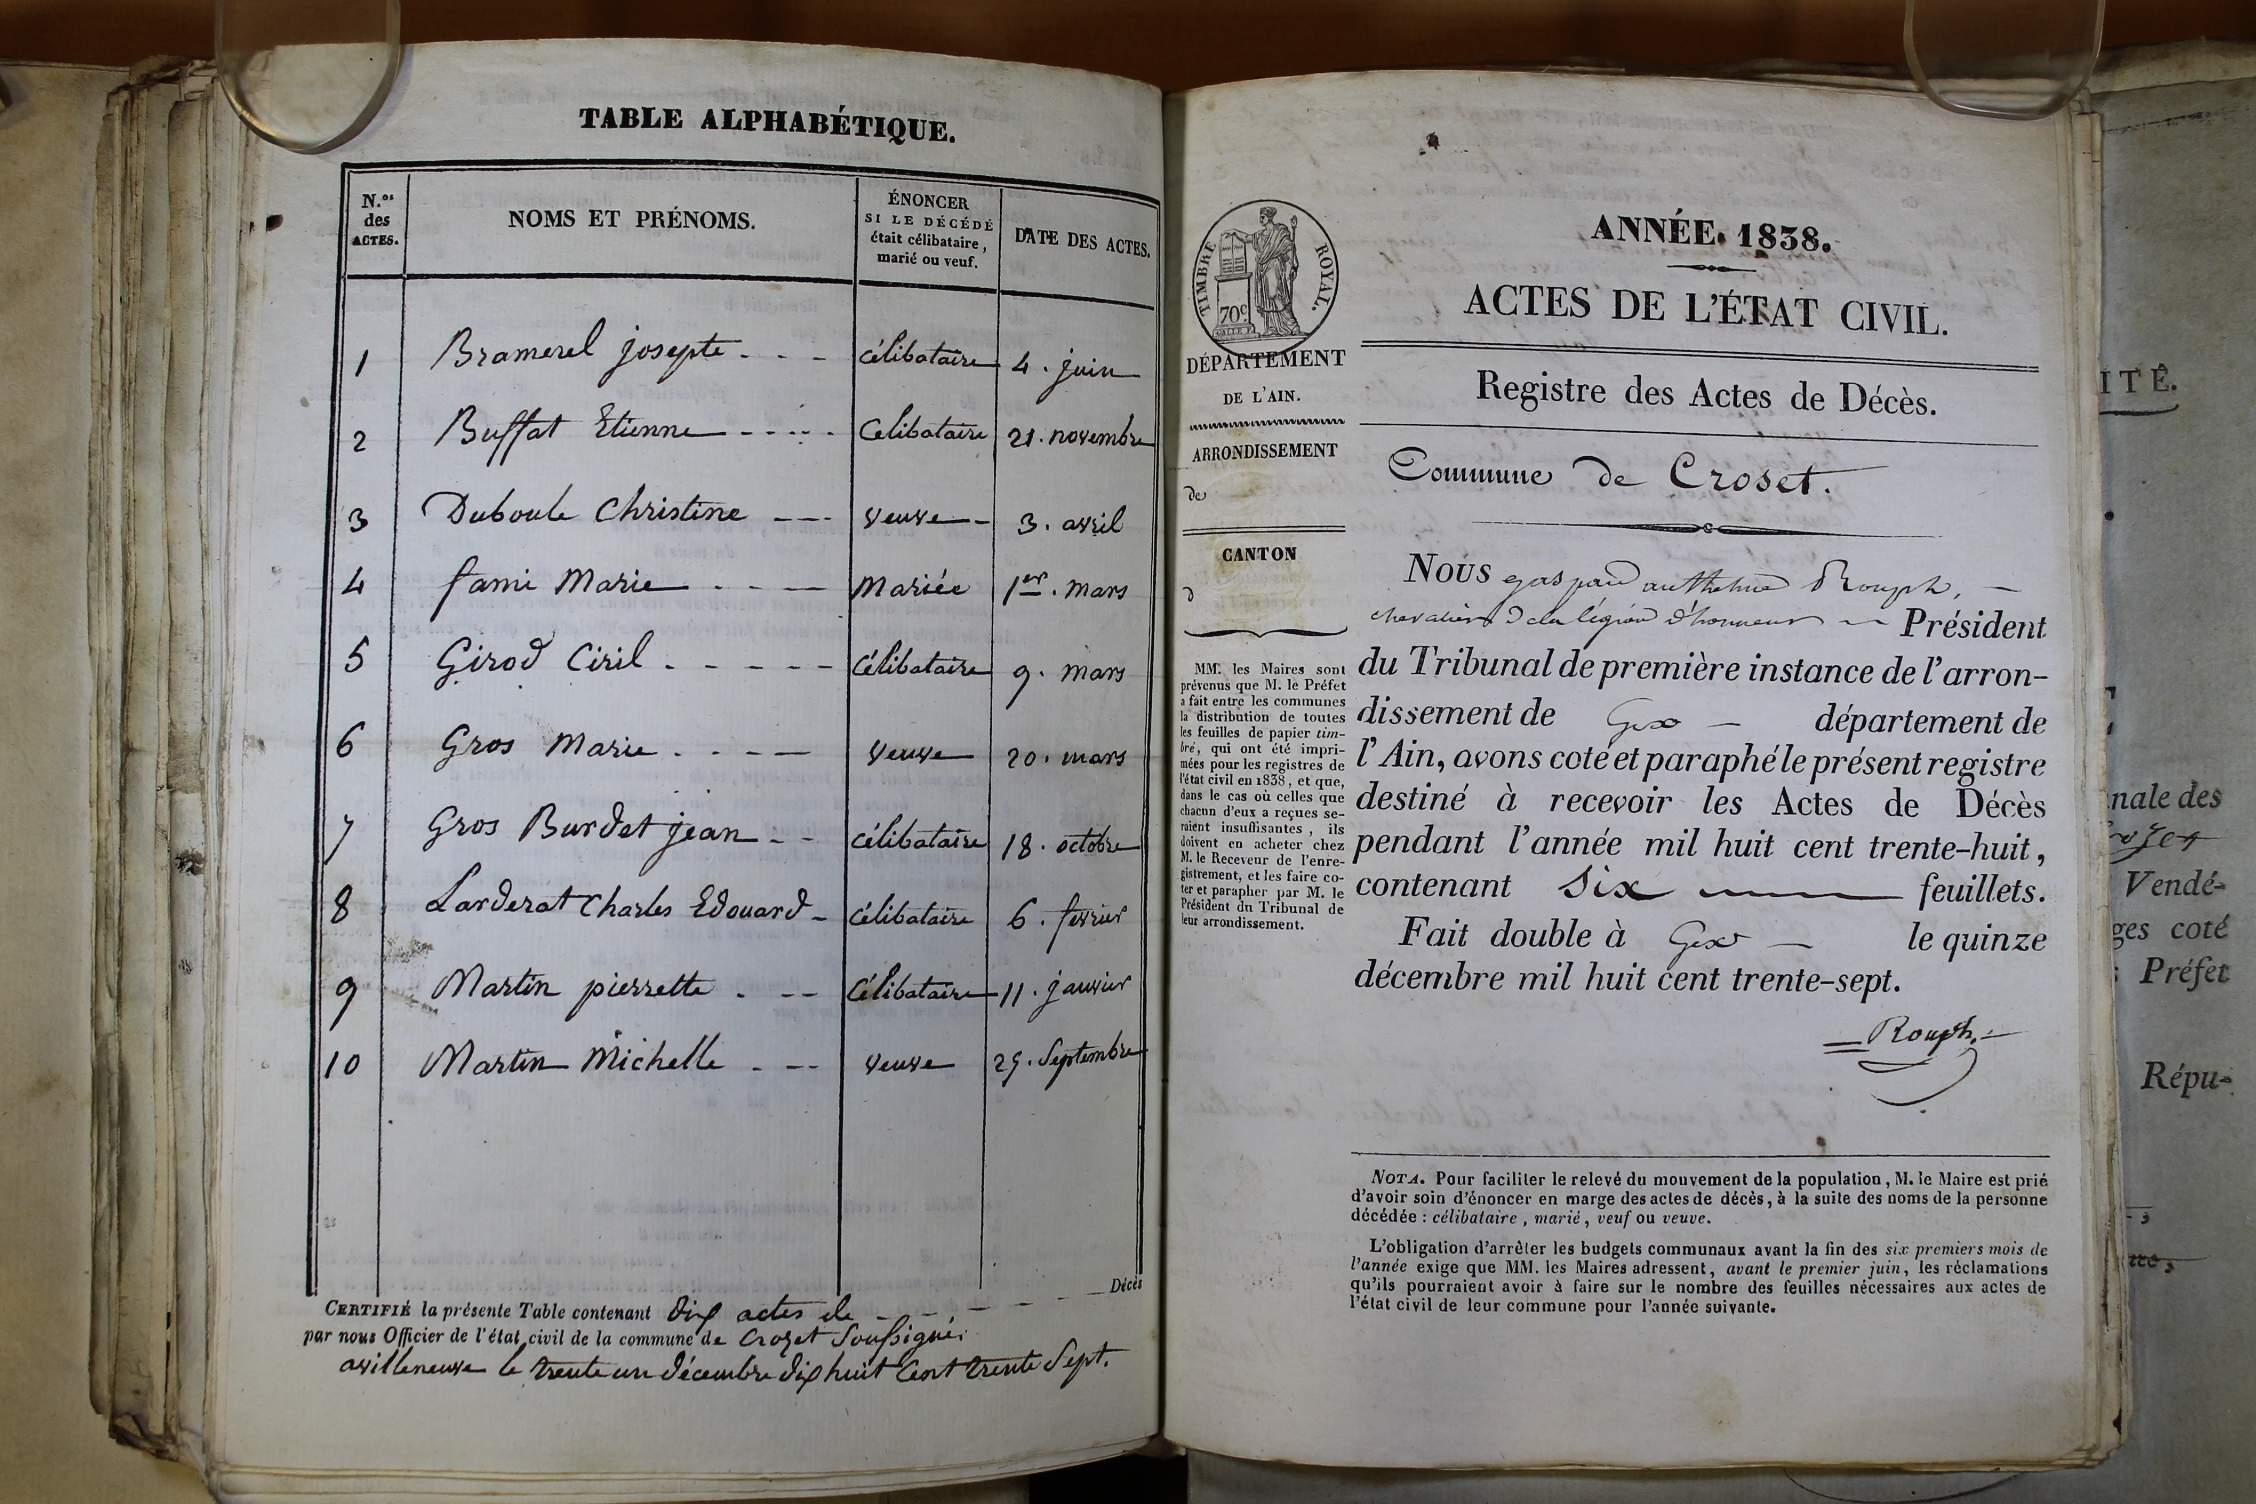 TABLE ALPHABÉTIQUE.
N.os des ACTES.
NOMS ET PRÉNOMS.
ÉNONCER
SI LE DÉCÉDÉ
était célibataire,
marié ou veuf.
DATE DES ACTES.
1 Bramerel josepte célibataire 4. juin
2 Buffat Etienne Celibataire 21. novembre
3 Duboule Christine veuve 3. avril
4 fami Marie Mariée 1er. mars
5 Girod Ciril Célibataire 9. mars
6 Gros Marie veuve 20. mars
7 Gros Burdet jean célibataire 18. octobre
8 Larderat Charles Edouard célibataire 6. fevrier
9 Martin pierrette Célibataire 11. janvier
10 Martin Michelle veuve 29. Septembre
Décès
CERTIFIÉ la présente Table contenant dix actes de
par nous Officier de l'état civil de la commune de Crozet Soussigné.
avilleneuve le trente un décembre dix huit Cent trente Sept.
TIMBRE ROYAL.
70c
DÉPARTEMENT
DE L'AIN.
ARRONDISSEMENT
de
CANTON
d
MM. les Maires sont
prévenus que M. le Préfet
a fait entre les communes
la distribution de toutes
les feuilles de papier tim-
bré, qui ont été impri-
mées pour les registres de
l'état civil en 1838, et que,
dans le cas où celles que
chacun d'eux a reçues se-
raient insuffisantes, ils
doivent en acheter chez
M. le Receveur de l'enre-
gistrement, et les faire co-
ter et parapher par M. le
Président du Tribunal de
leur arrondissement.
ANNÉE. 1838.
ACTES DE L'ÉTAT CIVIL.
Registre des Actes de Décès.
Commune de Croset.
Nous gaspard anthelme Rouph,
chevalier de la légion d'honneur Président
du Tribunal de première instance de l'arron-
dissement de Gex département de
l'Ain, avons coté et paraphé le présent registre
destiné à recevoir les Actes de Décès
pendant l'année mil huit cent trente-huit,
contenant Six feuillets.
Fait double à Gex le quinze
décembre mil huit cent trente-sept.
Rouph.
NOTA. Pour faciliter le relevé du mouvement de la population, M. le Maire est prié
d'avoir soin d'énoncer en marge des actes de décès, à la suite des noms de la personne
décédée : célibataire, marié, veuf ou veuve.
L'obligation d'arrêter les budgets communaux avant la fin des six premiers mois de
l'année exige que MM. les Maires adressent, avant le premier juin, les réclamations
qu'ils pourraient avoir à faire sur le nombre des feuilles nécessaires aux actes de
l'état civil de leur commune pour l'année suivante.
ITÉ.
nale des
Vendé-
ges coté
Préfet
Répu-